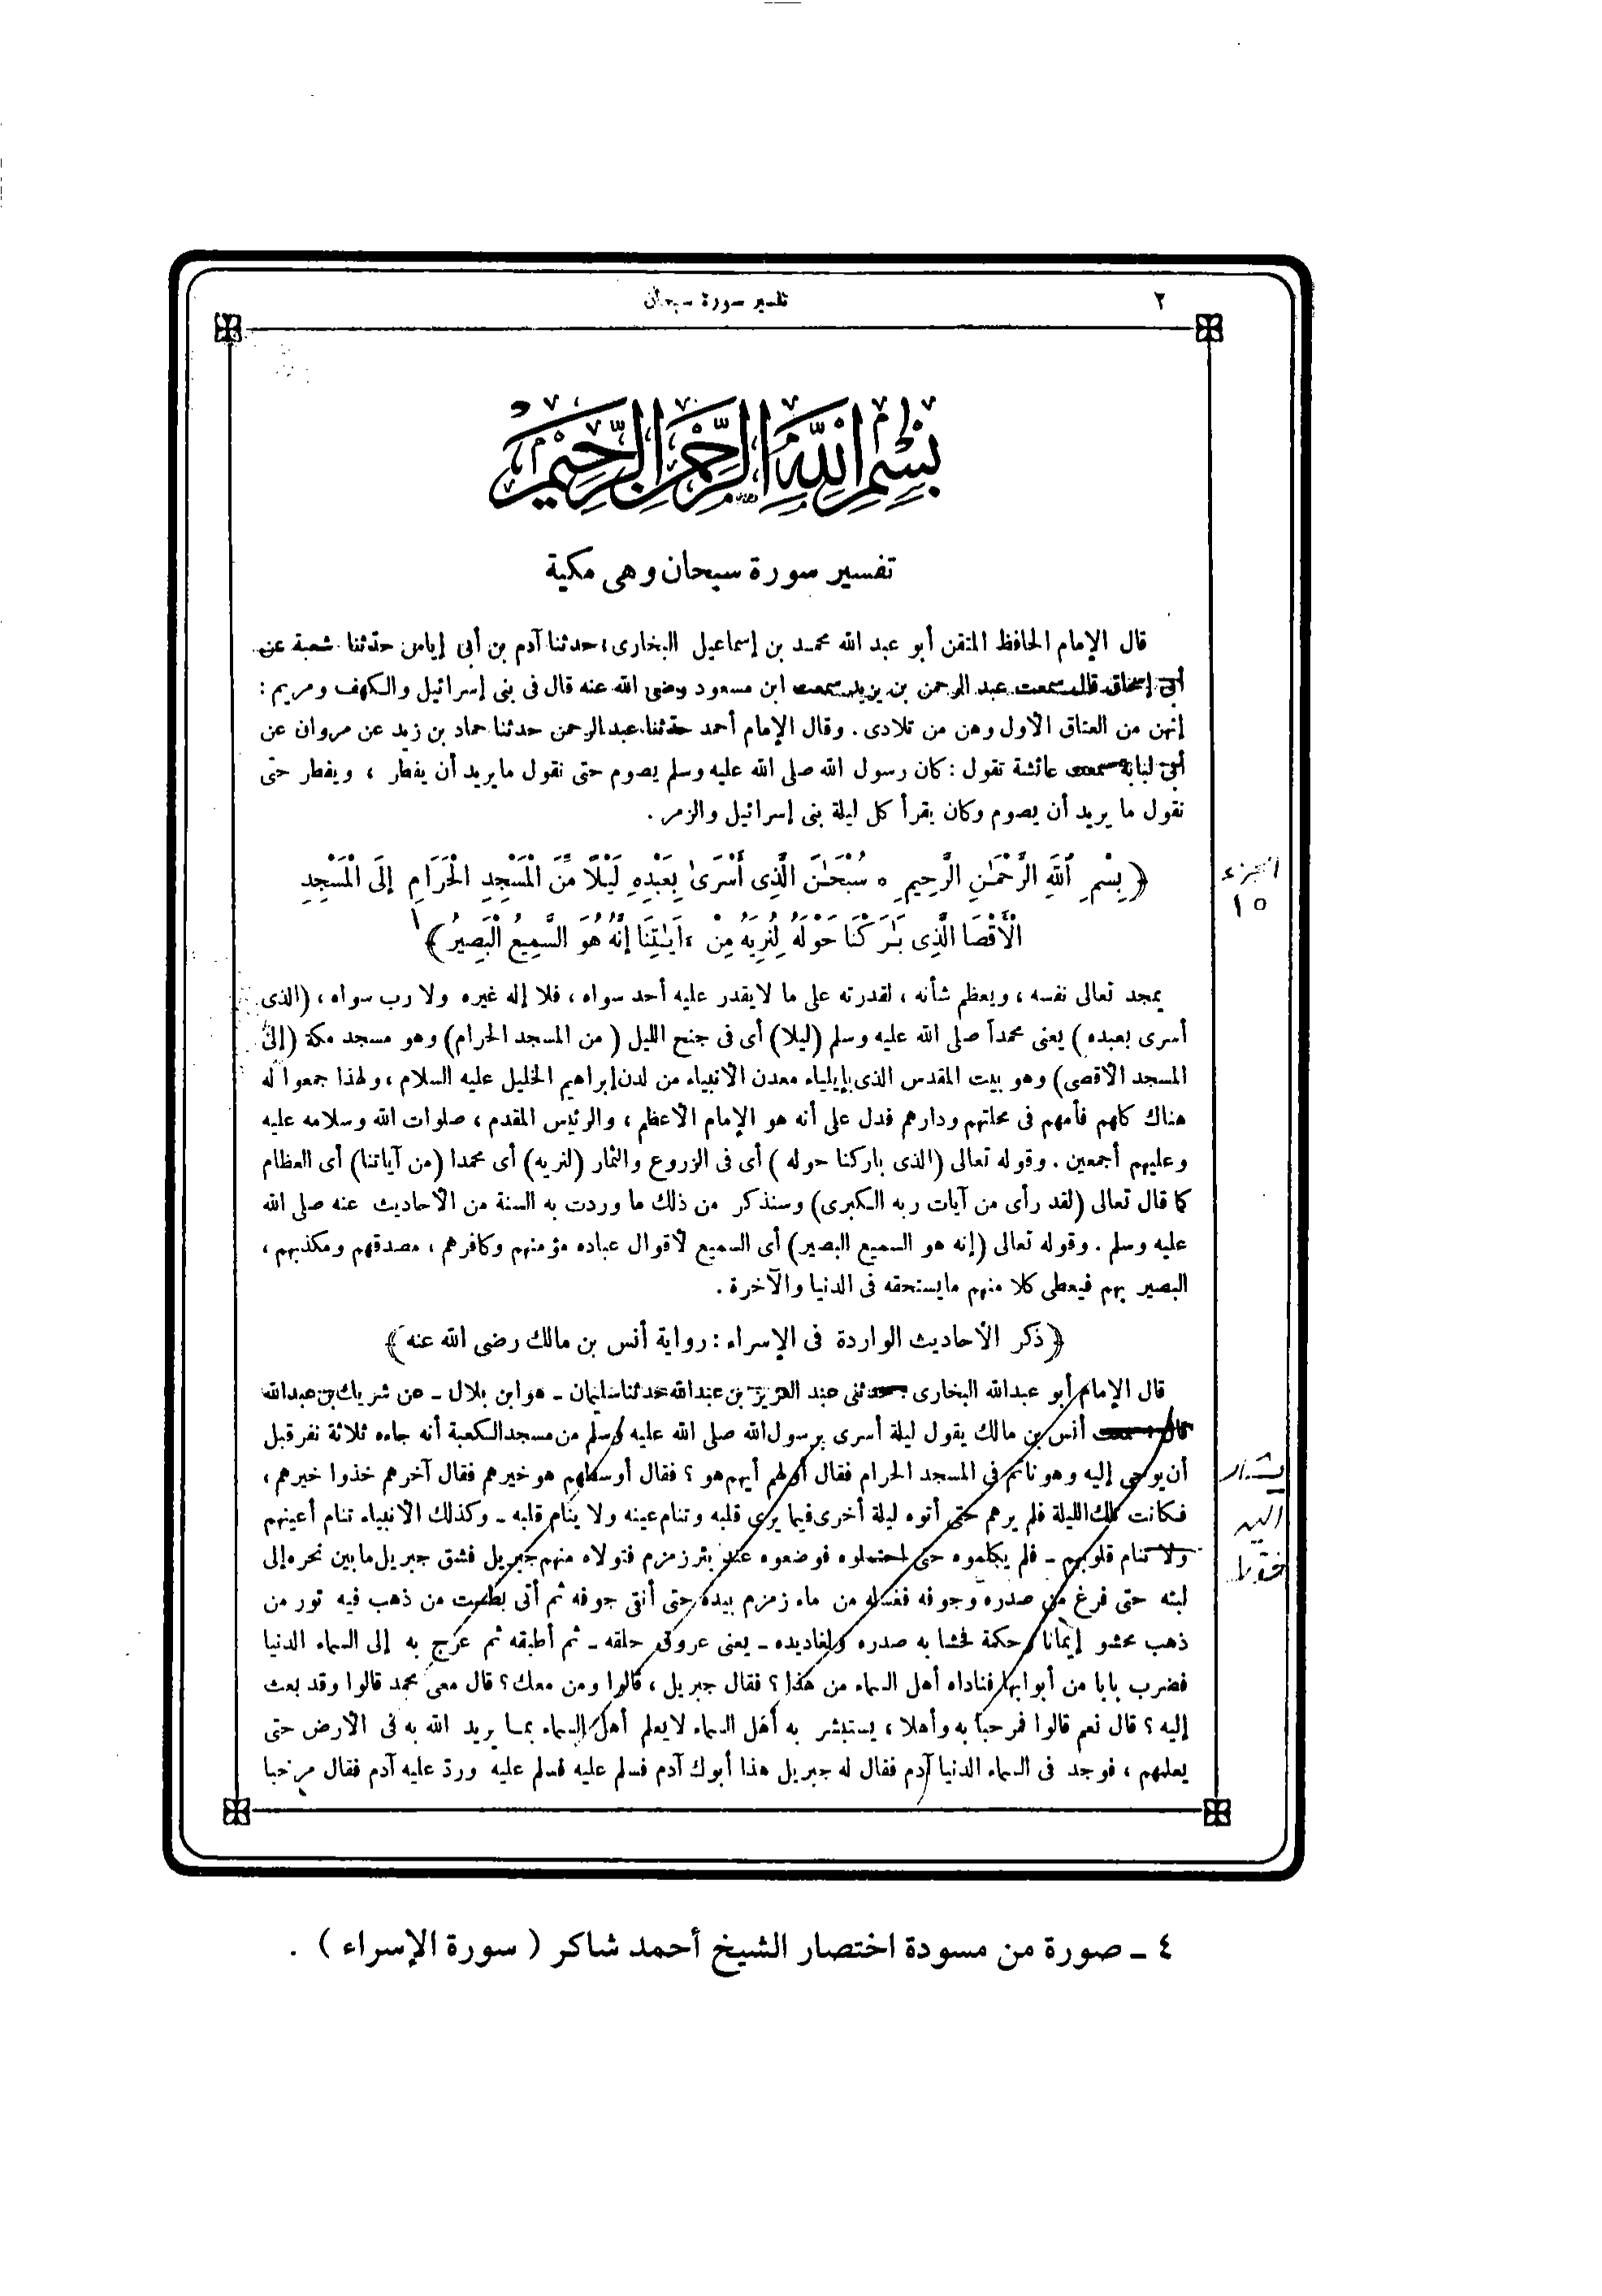 ٢
تفسير سورة سبحان
بسم الله الرحمن الرحيم
تفسير سورة سبحان وهى مكية
قال الإمام الحافظ المتقن أبو عبد الله محمد بن إسماعيل البخارى : حدثنا آدم بن أبى إياس حدثنا شعبة عن
أبى إسحاق قال سمعت عبد الرحمن بن يزيد سمعت ابن مسعود رضى الله عنه قال فى بنى إسرائيل والكهف ومريم :
إنهن من العتاق الأول وهن من تلادى . وقال الإمام أحمد حدثنا عبد الرحمن حدثنا حماد بن زيد عن مروان عن
أبى لبابة سمعت عائشة تقول : كان رسول الله صلى الله عليه وسلم يصوم حتى نقول ما يريد أن يفطر ، ويفطر حتى
نقول ما يريد أن يصوم وكان يقرأ كل ليلة بنى إسرائيل والزمر .
﴿ بِسْمِ ٱللَّهِ الرَّحْمَـٰنِ الرَّحِيمِ ه سُبْحَـٰنَ الَّذِى أَسْرَىٰ بِعَبْدِهِ لَيْلًا مِّنَ الْمَسْجِدِ الْحَرَامِ إِلَى الْمَسْجِدِ
الْأَقْصَا الَّذِى بَـٰرَكْنَا حَوْلَهُ لِنُرِيَهُ مِنْ ءَايَـٰتِنَا إِنَّهُ هُوَ السَّمِيعُ الْبَصِيرُ ﴾
الجزء
١٥
يمجد تعالى نفسه ، ويعظم شأنه ، لقدرته على ما لا يقدر عليه أحد سواه ، فلا إله غيره ولا رب سواه ، (الذى
أسرى بعبده) يعنى محمداً صلى الله عليه وسلم (ليلا) أى فى جنح الليل (من المسجد الحرام) وهو مسجد مكة (إلى
المسجد الأقصى) وهو بيت المقدس الذى بإيلياء معدن الأنبياء من لدن إبراهيم الخليل عليه السلام ، ولهذا جمعوا له
هناك كلهم فأمهم فى محلتهم ودارهم فدل على أنه هو الإمام الأعظم ، والرئيس المقدم ، صلوات الله وسلامه عليه
وعليهم أجمعين . وقوله تعالى (الذى باركنا حوله) أى فى الزروع والثمار (لنريه) أى محمدا (من آياتنا) أى العظام
كما قال تعالى (لقد رأى من آيات ربه الكبرى) وسنذكر من ذلك ما وردت به السنة من الأحاديث عنه صلى الله
عليه وسلم . وقوله تعالى (إنه هو السميع البصير) أى السميع لأقوال عباده مؤمنهم وكافرهم ، مصدقهم ومكذبهم ،
البصير بهم فيعطى كلا منهم ما يستحقه فى الدنيا والآخرة .
﴿ ذكر الأحاديث الواردة فى الإسراء : رواية أنس بن مالك رضى الله عنه ﴾
قال الإمام أبو عبد الله البخارى حدثنى عبد العزيز بن عبد الله حدثنا سليمان ـ هو ابن بلال ـ عن شريك بن عبد الله
قال سمعت أنس بن مالك يقول ليلة أسرى برسول الله صلى الله عليه وسلم من مسجد الكعبة أنه جاءه ثلاثة نفر قبل
أن يوحى إليه وهو نائم فى المسجد الحرام فقال أولهم أيهم هو ؟ فقال أوسطهم هو خيرهم فقال آخرهم خذوا خيرهم ،
فكانت تلك الليلة فلم يرهم حتى أتوه ليلة أخرى فيما يرى قلبه وتنام عينه ولا ينام قلبه ـ وكذلك الأنبياء تنام أعينهم
ولا تنام قلوبهم ـ فلم يكلموه حتى احتملوه فوضعوه عند بئر زمزم فتولاه منهم جبريل فشق جبريل ما بين نحره إلى
لبته حتى فرغ من صدره وجوفه فغسله من ماء زمزم بيده حتى أنقى جوفه ثم أتى بطست من ذهب فيه تور من
ذهب محشو إيمانا وحكمة فحشا به صدره ولغاديده ـ يعنى عروق حلقه ـ ثم أطبقه ثم عرج به إلى السماء الدنيا
فضرب بابا من أبوابها فناداه أهل السماء من هذا ؟ فقال جبريل ، قالوا ومن معك ؟ قال معى محمد قالوا وقد بعث
إليه ؟ قال نعم قالوا فمرحبا به وأهلا ، يستبشر به أهل السماء لا يعلم أهل السماء بما يريد الله به فى الأرض حتى
يعلمهم ، فوجد فى السماء الدنيا آدم فقال له جبريل هذا أبوك آدم فسلم عليه فسلم عليه ورد عليه آدم فقال مرحبا
يشار
إليه
فقط
٤ ـ صورة من مسودة اختصار الشيخ أحمد شاكر ( سورة الإسراء ) .